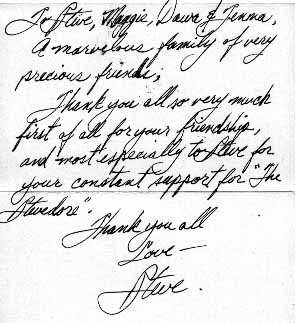 To Steve, Maggie, Dawa & Tenma,
A marvelous family of very
precious friends;
Thank you all so very much
first of all for your friendship,
and most especially to Steve for
your constant support for "The
Stevedore".
Thank you all
Love—
Steve.